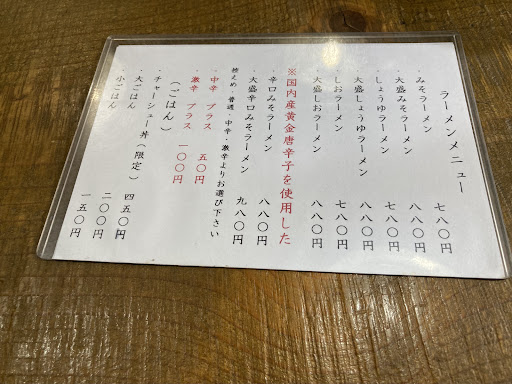 ラーメンメニュー
・みそラーメン 七八〇円
・大盛みそラーメン 八八〇円
しょうゆラーメン 七八〇円
大盛しょうゆラーメン 八八〇円
しおラーメン 七八〇円
大盛しおラーメン 八八〇円
※国内産黄金唐辛子を使用した
・辛口みそラーメン 八八〇円
・大盛辛口みそラーメン 九八〇円
控えめ・普通・中辛・激辛よりお選び下さい
・中辛 プラス 五〇円
激辛 プラス 一〇〇円
（ごはん）
・チャーシュー丼（限定） 四五〇円
・大ごはん 二〇〇円
小ごはん 一五〇円